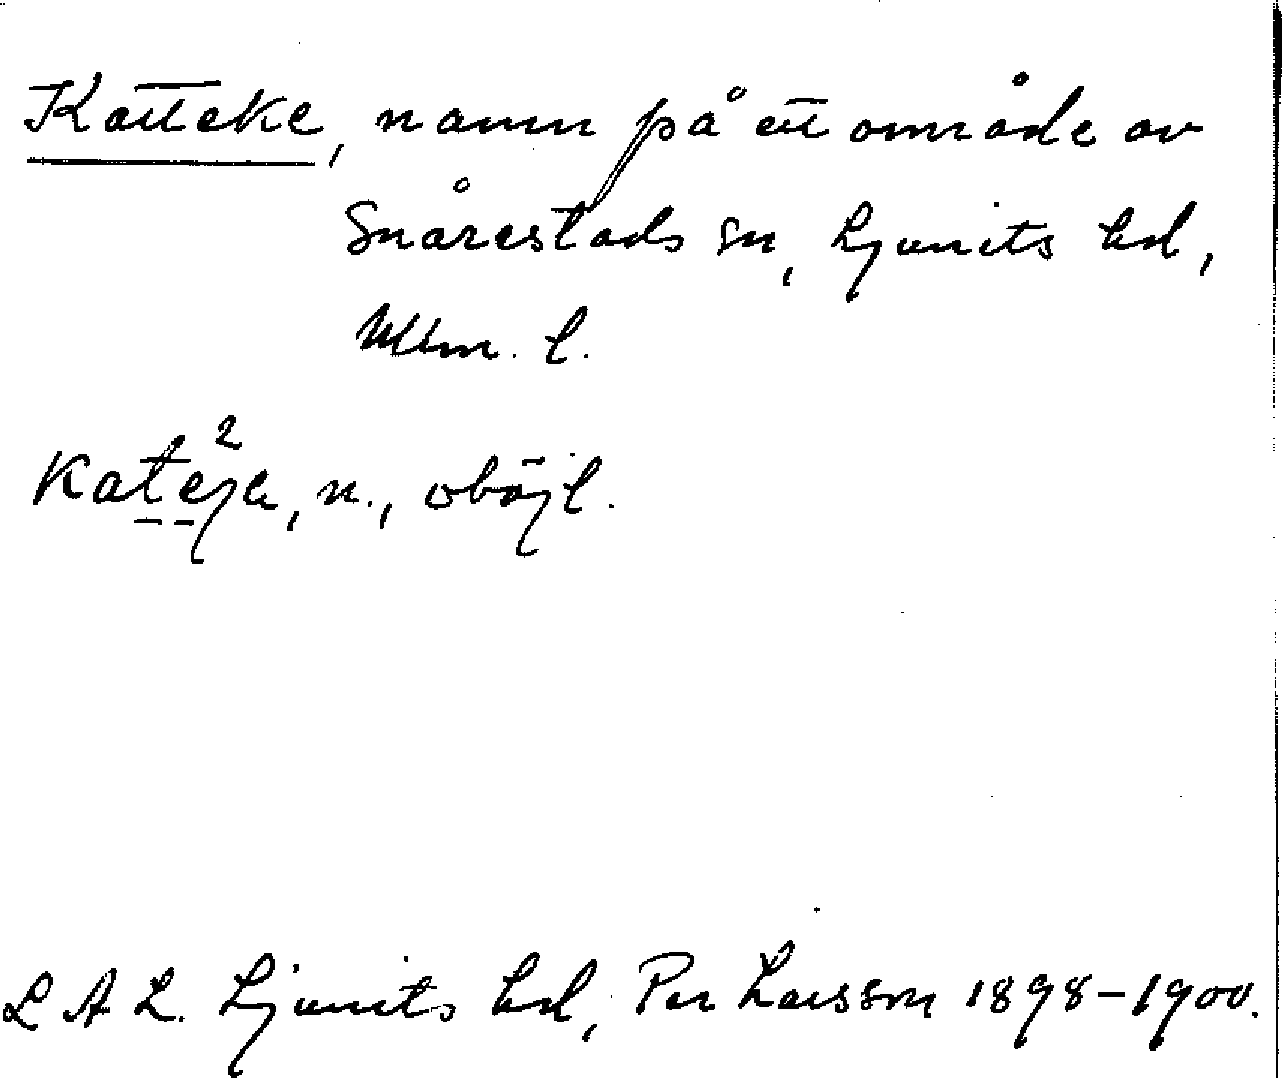 Katteke, namn på ett område av
Snårestads sn, Ljunits hd,
Mlm. l.
n., oböjl.
L A L. Ljunits hd, Per Larsson 1898-1900.